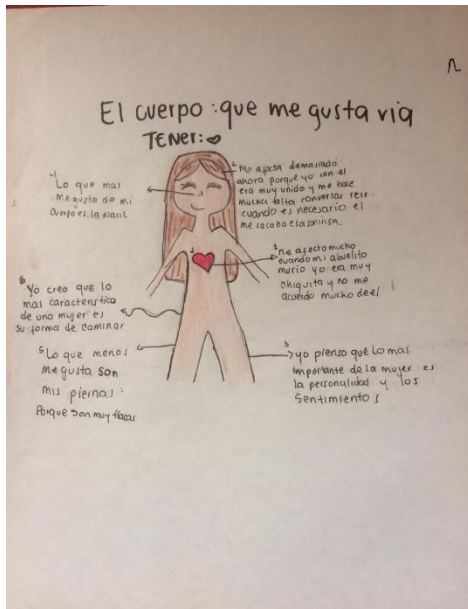 El cuerpo: que me gusta ria
TENER:
1 Lo que mas
me gusta de mi
cuerpo es la nariz
2 Me afecta demasiado
ahora porque yo con el
era muy unido y me hace
mucha falta conversar reir
cuando es necesario el
me sacaba esa sonrisa.
1 me afecto mucho
cuando mi abuelito
murio yo era muy
chiquita y no me
acuerdo mucho de el
6 Yo creo que lo
mas caracteristico
de una mujer es
su forma de caminar
5 Lo que menos
me gusta son
mis piernas
Porque son muy flacas
3 yo pienso que lo mas
importante de la mujer es
la personalidad y los
sentimientos